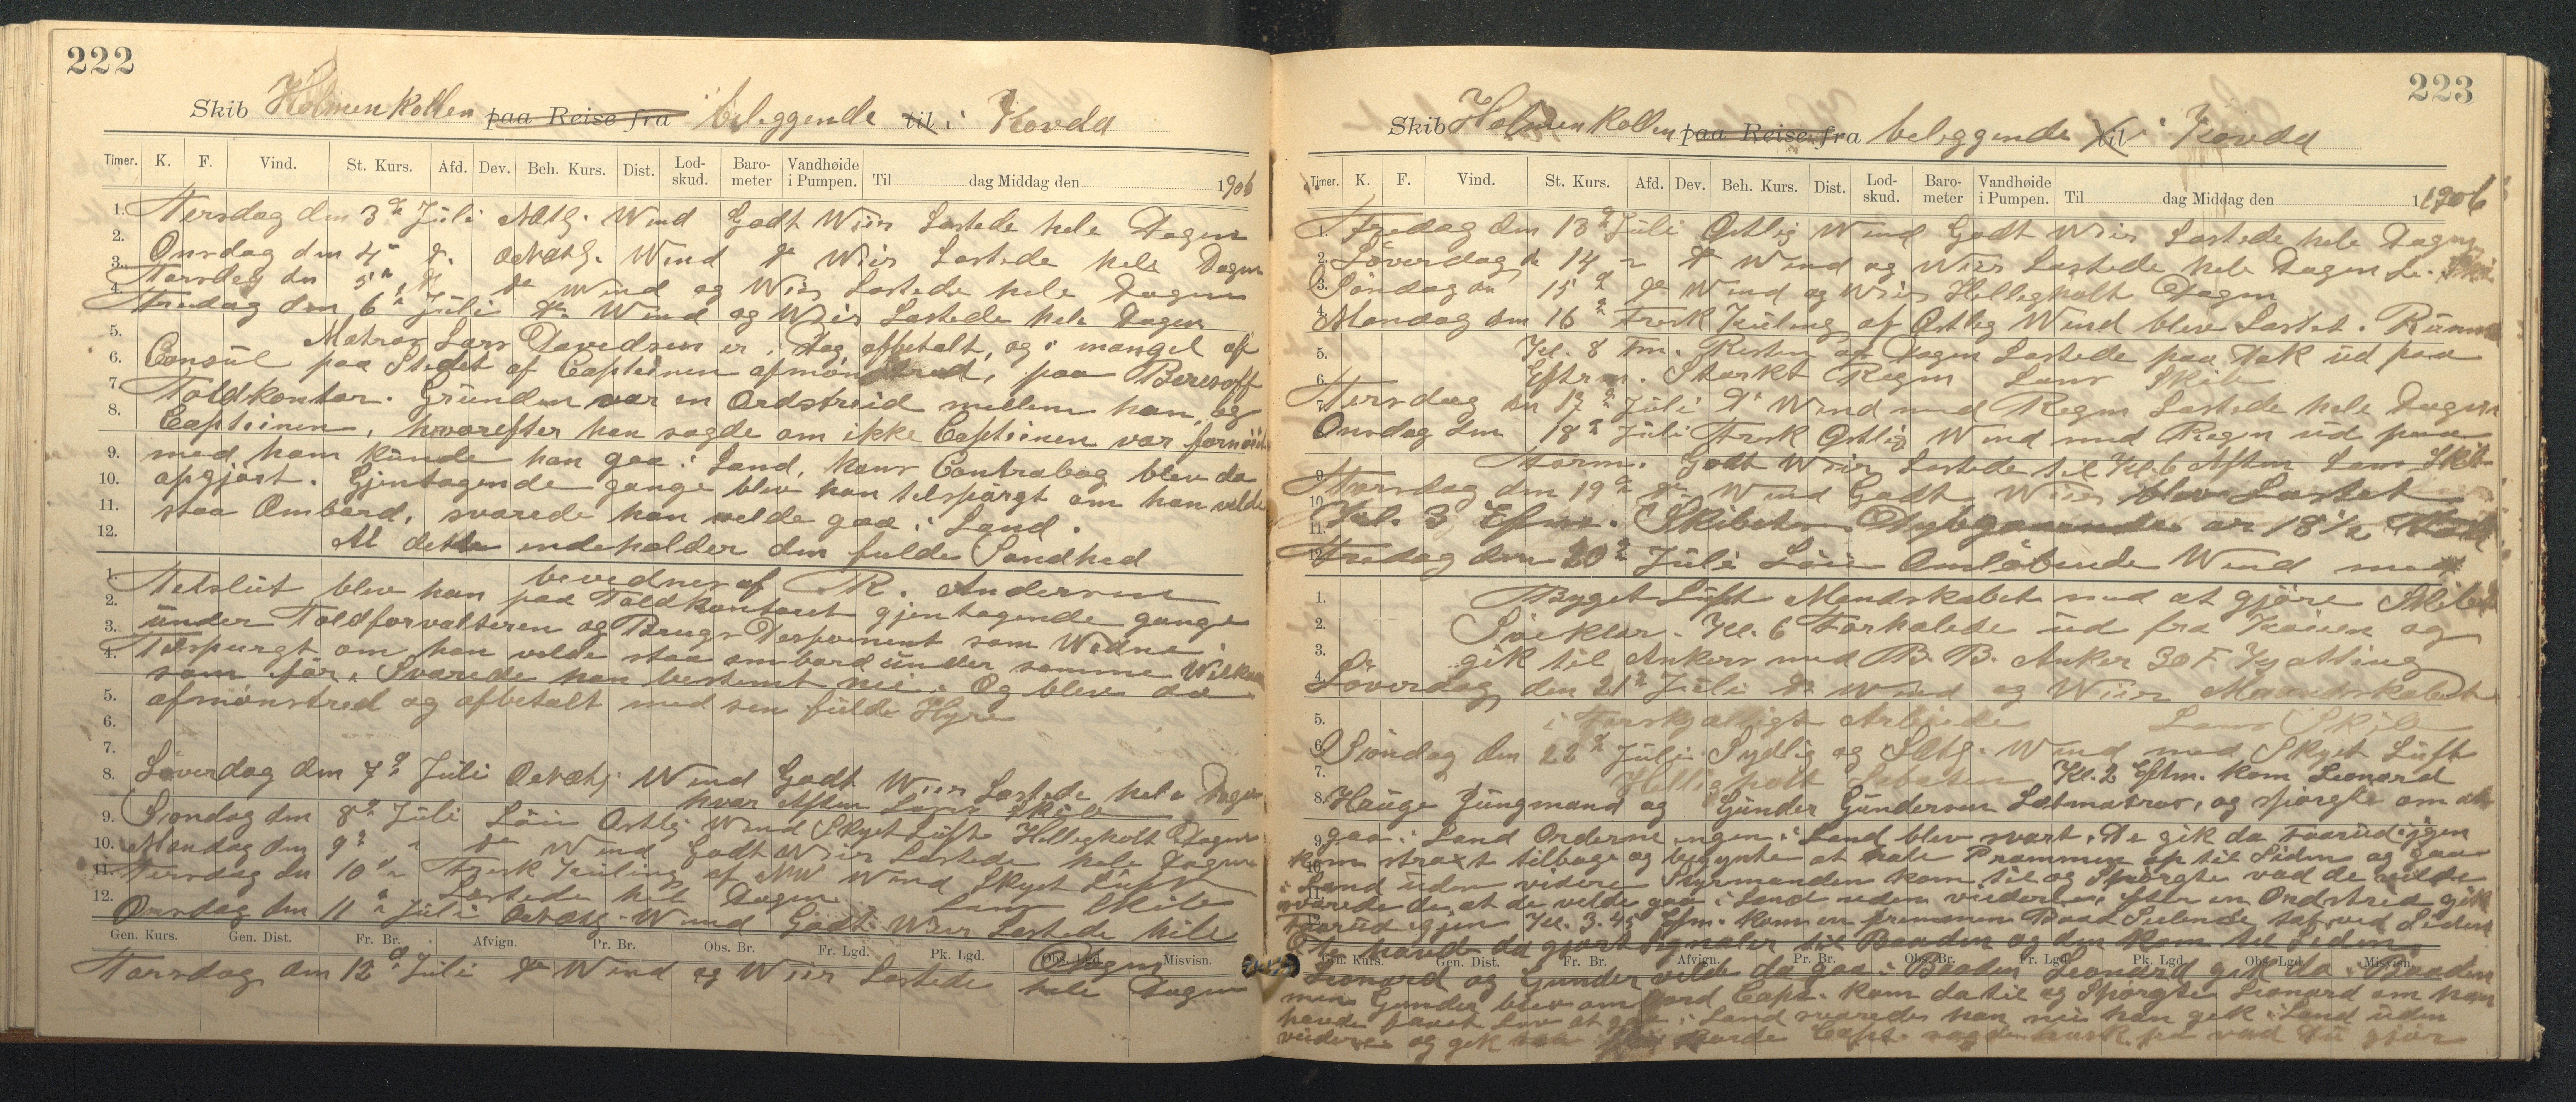 222
Skib Holmenkollen paa Reise fra beleggende til i Kovda
Timer. K. F. Vind. St. Kurs. Afd. Dev. Beh. Kurs. Dist. Lod-skud. Baro-meter Vandhøide i Pumpen. Til dag Middag den 1906
1. Tersdag den 3d Juli Wind Godt Weir Lastede hele Dagen
2. Onsdag den 4 d. Wind do Weir Lastede hele Dagen
3. Torsdag den 5 do Wind og Weir Lastede hele Dagen
4. Fredag den 6 Juli do Wind og Weir Lastede hele Dagen
5. Matros Lars Davedsen er i Dag afbetalt, og i mangel af
6. Consul paa Stedet af Capteinen afmønstred, paa Beresoff
7. Toldkontor. Grunden var en Ordstreid mellem han og
8. Capteinen, hvorefter han sagde om ikke Capteinen var fornøiet
9. med ham kunde han gaa i Land, hans Contrabog blev da
10. opgjort. Gjentagende gange blev han tilspurgt om han vilde
11. staa Ombord, svarede han velde gaa i Land.
12. At dette indeholder den fulde Sandhed
bevedner af R. Andersen
1. Tetslut blev han paa Toldkontoret gjentagende gange
2. under Toldforvalteren og Brugs Desponent som Wedne
3. Tilspurgt om han velde staa ombord under samme Wilkaar
4. som før. Svarede han bestemt nei. Og blev da
5. afmønstred og afbetalt med sen fulde Hyre
6.
7.
8. Løverdag den 7d Juli Wind Godt Weir Lastede hele Dagen
hver Aften Lens Skib
9. Søndag den 8d Juli Løi Ostlig Wind Skyet Luft Helleghalt Dagen
10. Mandag den 9d do Wind Godt Weir Lastede hele Dagen
11. Tersdag den 10d Fresk Kuling af NW Wind Skyet Luft
12. Lastede hele Dagen Lens Skib
Onsdag den 11 Juli Wind Godt Weir Lastede hele
Gen. Kurs. Gen. Dist. Fr. Br. Afvign. Pr. Br. Obs. Br. Fr. Lgd. Pk. Lgd. Obs. Lgd. Misvisn.
Dagen
Torsdag den 12d Juli do Wind og Weir Lastede hele Dagen
223
Skib Holmenkollen paa Reise fra beleggende til i Kovda
Timer. K. F. Vind. St. Kurs. Afd. Dev. Beh. Kurs. Dist. Lod-skud. Baro-meter Vandhøide i Pumpen. Til dag Middag den 1906
1. Fredag den 13d Juli Ostlig Wind Godt Weir Lastede hele Dagen
2. Løverdag d 14 do Wind og Weir Lastede hele Dagen
3. Søndag den 15d do Wind og Weir Helleghalt Dagen
4. Mandag den 16d Fresk Kuling af Ostlig Wind blev Lastet i Rummet
5. Kl. 8 Fm. Resten af Dagen Lastede paa Dæk ud paa
6. Eftrm. Stærkt Regn Lens Skib
7. Tersdag den 17d Juli do Wind med Regn Lastede hele Dagen
8. Onsdag den 18d Juli Fresk Ostlig Wind med Regn ud paa
Form. Godt Weir Lastede til Kl. 6 Aften Lens Skib
9. Torsdag den 19d do Wind Godt Weir blev Lastet
10. 11. Kl. 3 Efm. Skibets Dybgaaende er 18 1/2 Fod
12. Fredag den 20d Juli Løi Omløbende Wind med
1. Byget Luft Mandskabet med at gjøre Skibet
2. Søeklar. Kl. 6 Forhalede ud fra Kaien og
3. gik til Ankers med B. B. Anker 30 F. Kjætting
4. Løverdag den 21d Juli do Wind og Weir Mandskabet
5. i Forskjælligt Arbeide Lens Skib
6. Søndag den 22d Juli Sydlig og Wind med Skyet Luft
7. Hellig holt Sabaten Kl. 2 Eftm. kom Leonard
8. Hauge Jungmand og Gunder Gundersen Letmatros, og spørgte om at
9. gaa i Land Orderne ingen i Land blev svart. De gik da forud igjen
kom straxt tilbage og begynte at hale Prammen op til Siden og gaa
10. i Land uden videre Styrmanden kom til og Spørgte vad de vilde
svarede de at de velde gaa i Land uden viedere, efter en Ordstreid gik
12. Forud igjen Kl. 3.45 Efm. kom en fremmen Baad Seilende tæt ved Siden
De havde da gjort Signaler til Baaden og den kom til Siden
Gen. Kurs. Gen. Dist. Fr. Br. Afvign. Pr. Br. Obs. Br. Fr. Lgd. Pk. Lgd. Obs. Lgd. Misvisn.
Leonard og Gunder velde da gaa i Baaden Leonard gik da i Baaden
men Gunder blev om Bord Capt. kom da til og Spørgte Leonard om han
havde faaet Lov at gaa i Land svarede han nei han gik i Land uden
viedere og gik saa Capt. sagde husk paa vad du gjør